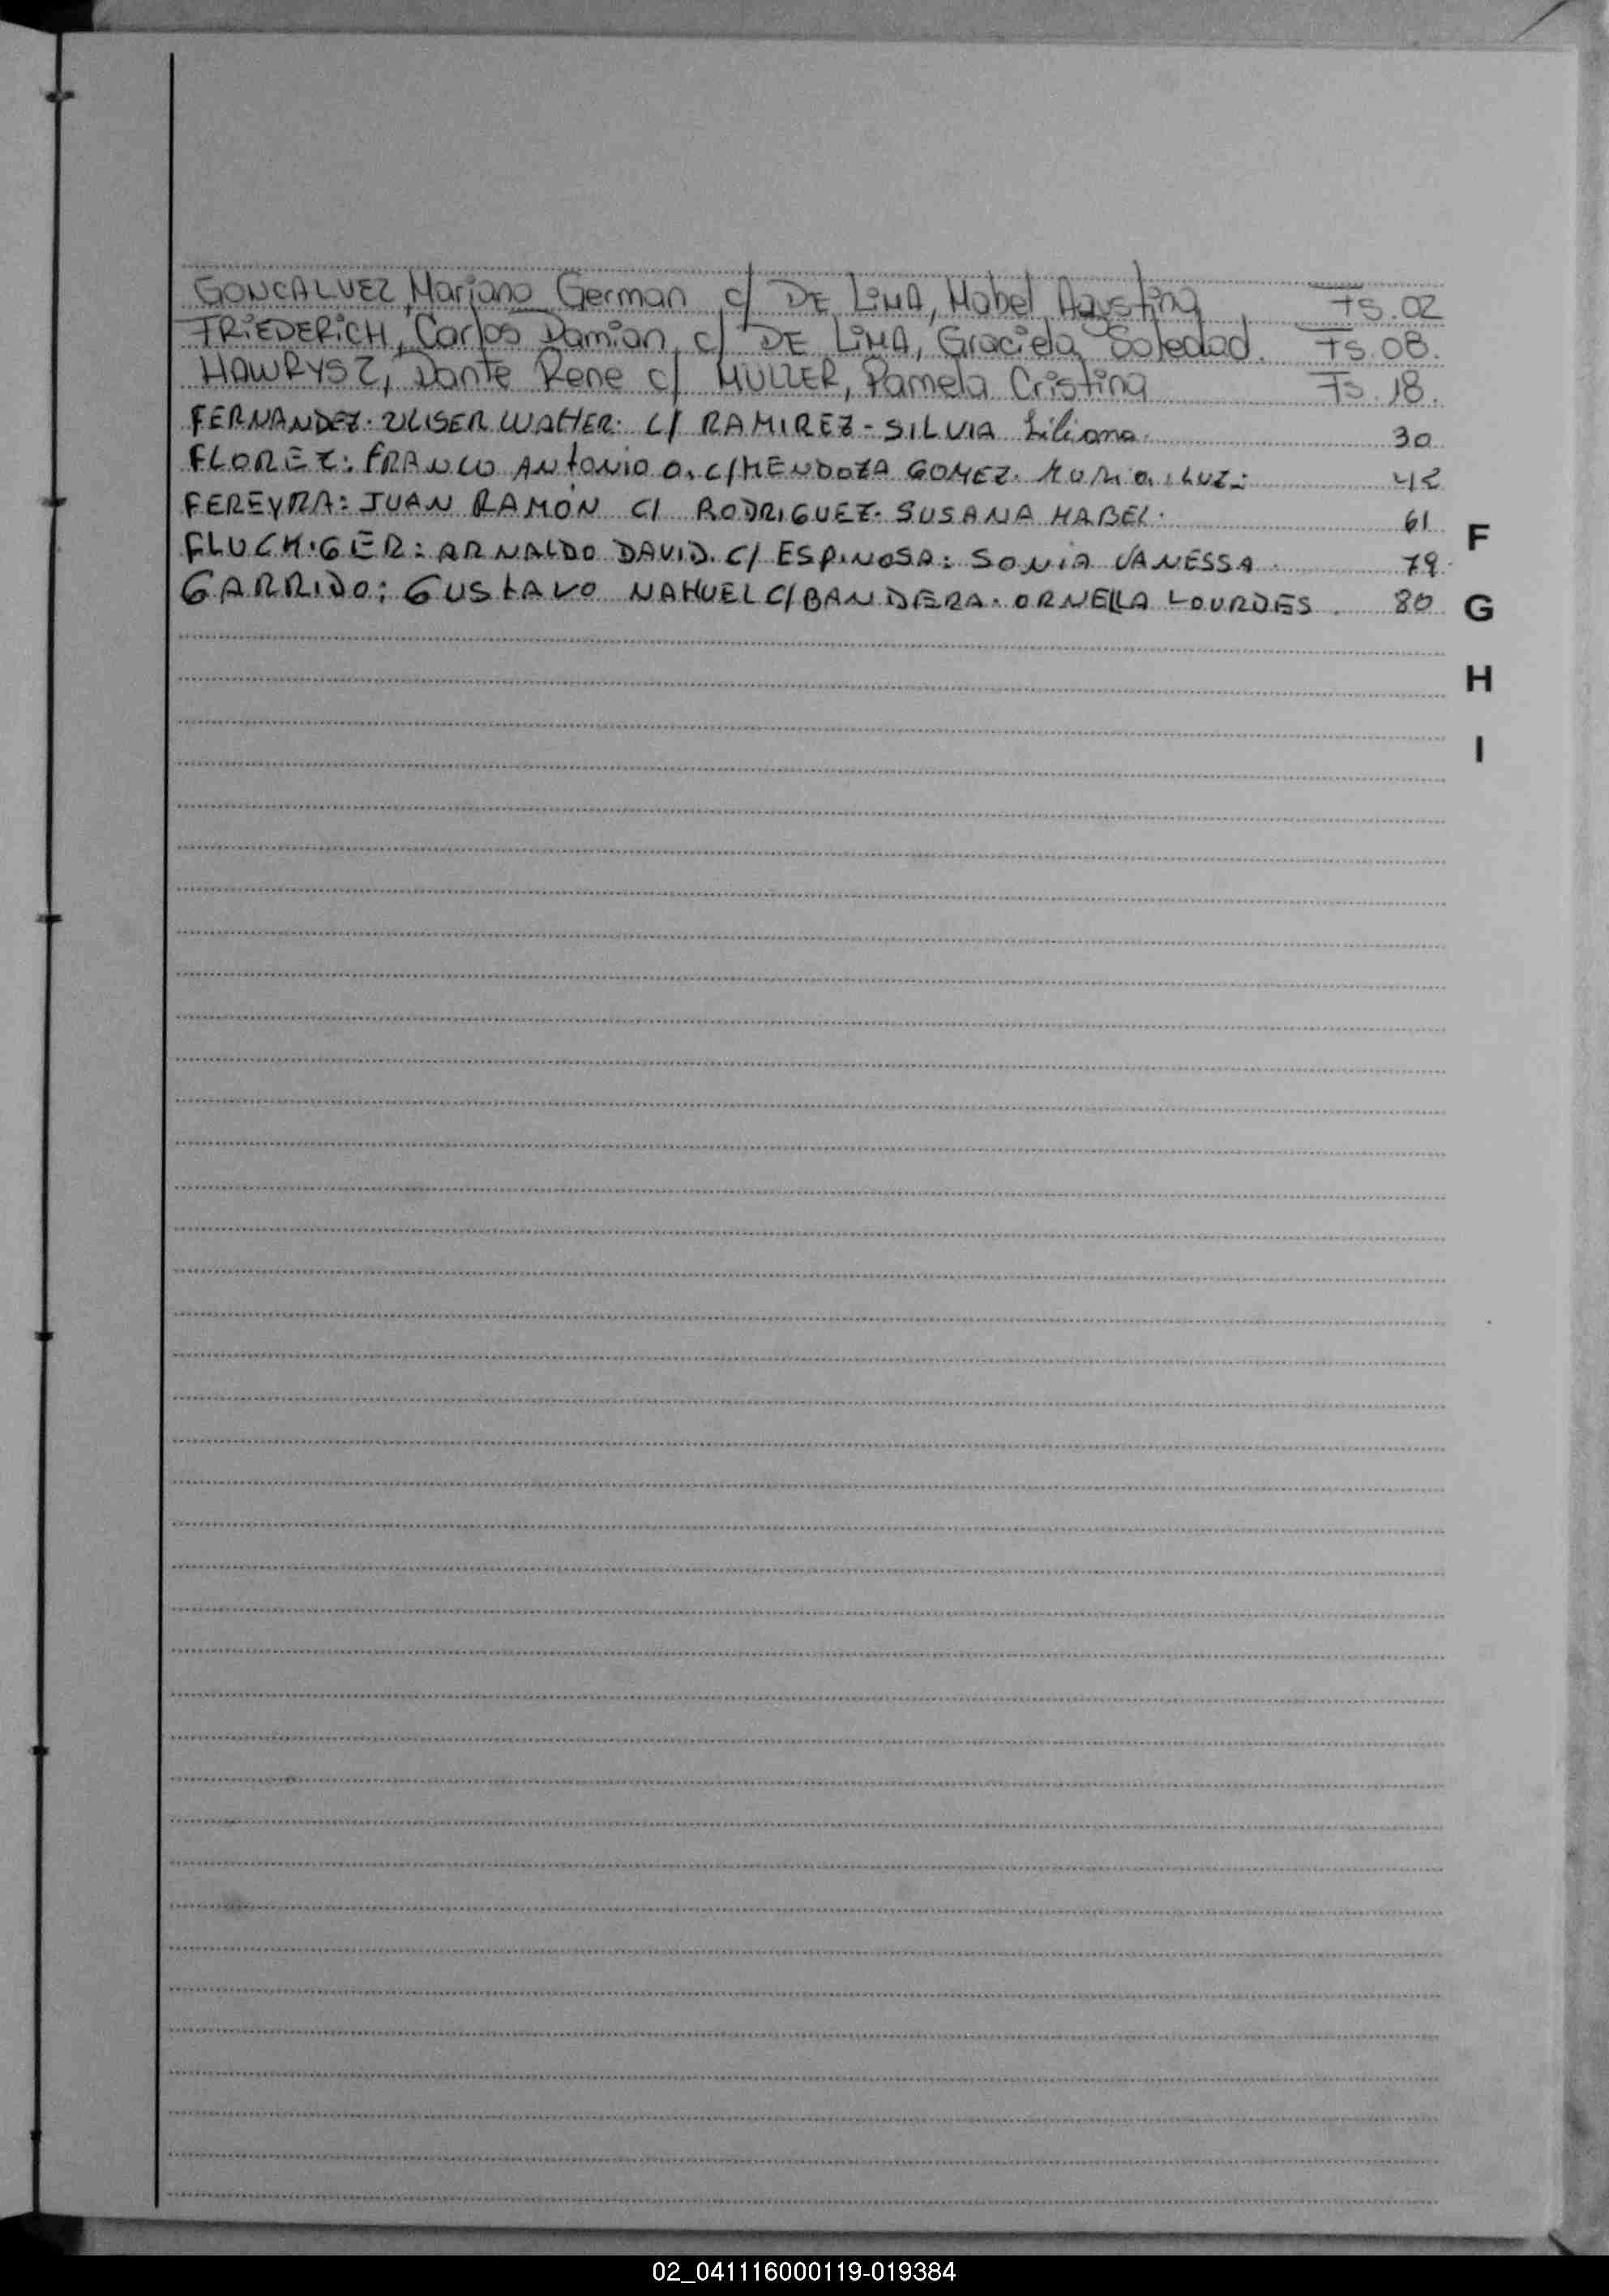 GONCALVEZ, Mariano German c/ DE LIMA, Mabel Agustina Fs. 02
FRIEDERICH, Carlos Damian c/ DE LIMA, Graciela Soledad. Fs. 08.
HAWRYSZ, Dante Rene c/ MULLER, Pamela Cristina Fs. 18.
FERNANDEZ. ULISER WALTER. C/ RAMIREZ - SILVIA Liliana. 30
FLOREZ: FRANCO ANTONIO O. C/ MENDOZA GOMEZ. MARIA LUZ: 42
FEREYRA: JUAN RAMÓN C/ RODRIGUEZ. SUSANA MABEL. 61
F
FLUCK.GER: ARNALDO DAVID. C/ ESPINOSA: SONIA VANESSA. 79.
GARRIDO: GUSTAVO NAHUEL C/ BANDIERA. ORNELLA LOURDES. 80
G
H
I
02_041116000119-019384